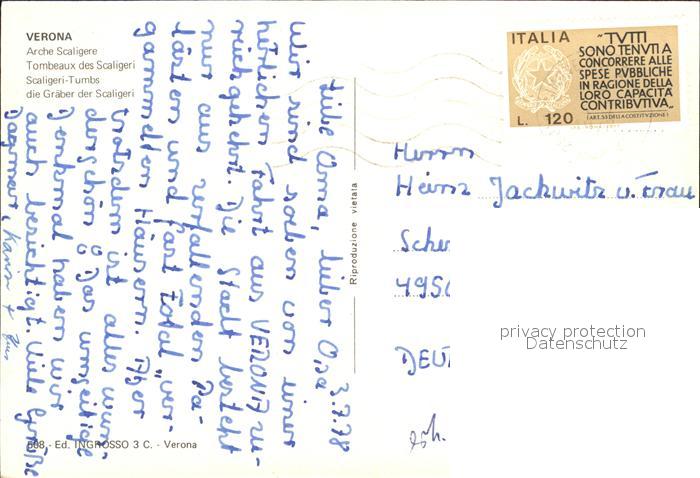 VERONA
Arche Scaligere
Tombeaux des Scaligeri
Scaligeri-Tumbs
die Gräber der Scaligeri
3.7.78
Liebe Oma, lieber Opa
Wir sind soeben von einer
herlichen Fahrt aus VERONA zu-
rückgekehrt. Die Stadt besteht
nur aus verfallenden Pa-
lästen und fast total "ver-
gammelten Häusern. Aber
trotzdem ist alles wun-
derschön Das umseitige
Denkmal haben wir
auch besichtigt. Viele Grüße
Dagmar, Karin +
608.- Ed. INGROSSO 3 C. - Verona
Riproduzione vietata
ITALIA
"TVTTI
SONO TENVTI A
CONCORRERE ALLE
SPESE PVBBLICHE
IN RAGIONE DELLA
LORO CAPACITÀ
CONTRIBVTIVA„
(ART. 53 DELLA COSTITVZIONE)
L. 120
Herrn
Heinz Jackwitz u. Frau
495
DEU
privacy protection
Datenschutz